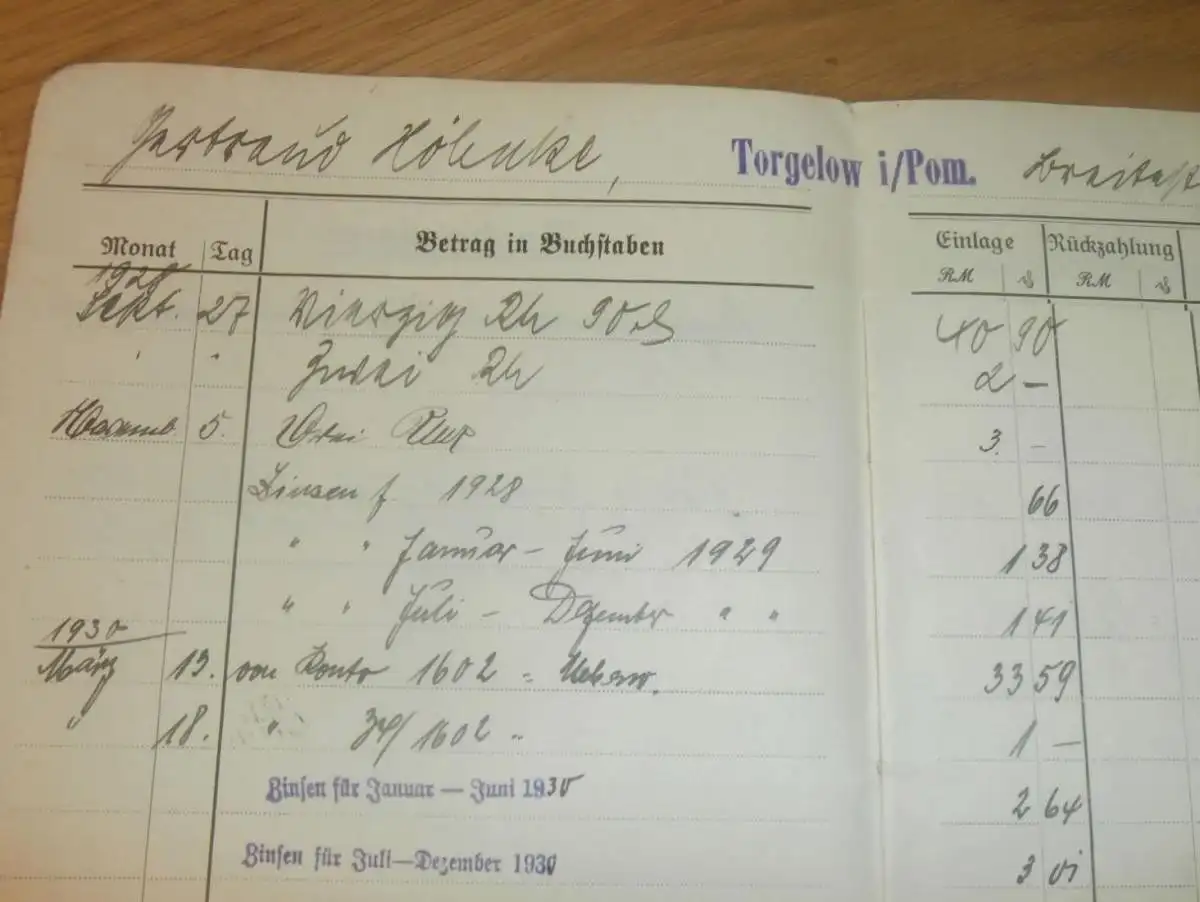 Gertraud Höhnke, Torgelow i/Pom. Breitest
Monat Tag Betrag in Buchstaben Einlage Rückzahlung
RM ₰ RM ₰
1928
Sept. 27 Vierzig RM 90 ₰ 40 90
" " Zwei RM 2 —
Novemb. 5. Drei RM 3. —
Zinsen f. 1928 66
" " Januar - Juni 1929 1 38
" " Juli - Dezember " " 1 41
1930
März 13. von Konto 1602 = Ueberw. 33 59
" 18. " 1602 " 1 —
Zinsen für Januar — Juni 1930 2 64
Zinsen für Juli—Dezember 1930 3 01